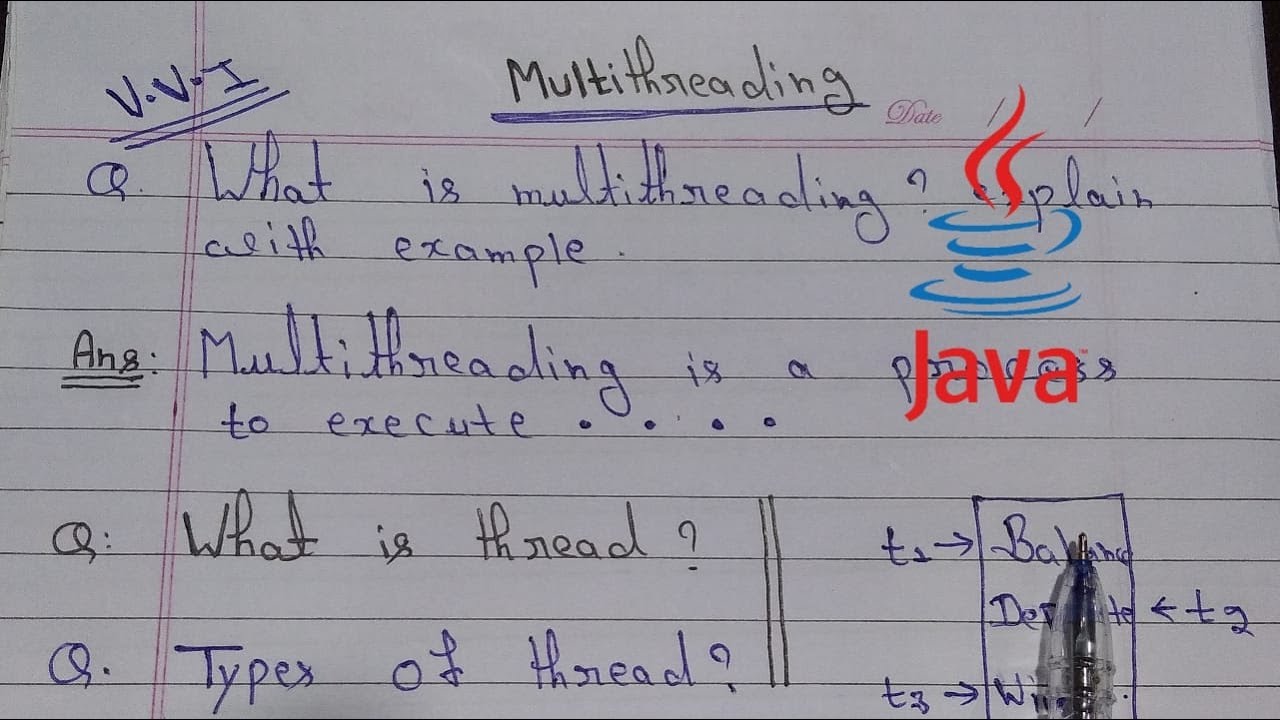 V.V.I
Multithreading
Date / /
Q. What is multithreading? Explain
with example.
Ans: Multithreading is a process
to execute . . . .
Java
Q: What is thread?
Q. Types of thread?
t1 →
← t2
t3 →